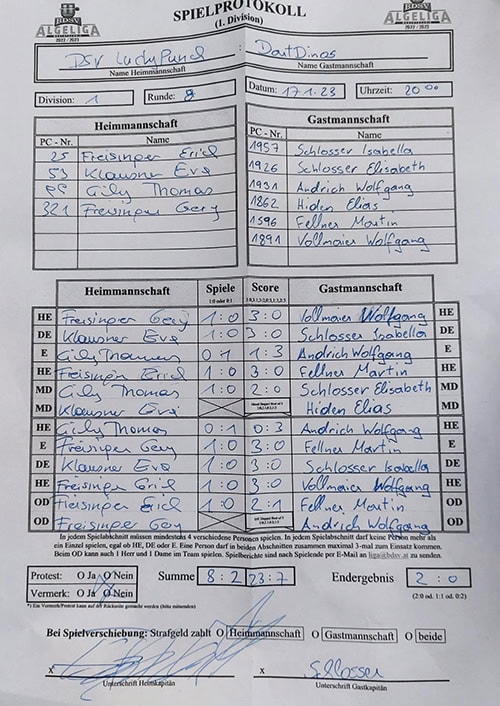 BDSV SPIELPROTOKOLL BDSV
ALGELIGA (1. Division) ALGELIGA
2022 / 2023 2022 / 2023
DSV LuckyPunch : DartDinos
Name Heimmannschaft Name Gastmannschaft
Division: 1 Runde: 8 Datum: 17.1.23 Uhrzeit: 20 00
Heimmannschaft Gastmannschaft
PC - Nr. Name PC - Nr. Name
25 Freisinger Erich 1957 Schlosser Isabella
53 Klausner Eva 1926 Schlosser Elisabeth
Gily Thomas 1931 Andrich Wolfgang
321 Freisinger Gery 1862 Hiden Elias
1596 Fellner Martin
1891 Vollmaier Wolfgang
Heimmannschaft Spiele Score Gastmannschaft
1:0 oder 0:1
HE Freisinger Gery 1:0 3:0 Vollmaier Wolfgang HE
DE Klausner Eva 1:0 3:0 Schlosser Isabella DE
E Gily Thomas 0:1 1:3 Andrich Wolfgang E
HE Freisinger Erich 1:0 3:0 Fellner Martin HE
MD Gily Thomas 1:0 2:0 Schlosser Elisabeth MD
MD Klausner Eva Hiden Elias MD
HE Gily Thomas 0:1 0:3 Andrich Wolfgang HE
E Freisinger Gery 1:0 3:0 Fellner Martin E
DE Klausner Eva 1:0 3:0 Schlosser Isabella DE
HE Freisinger Erich 1:0 3:0 Vollmaier Wolfgang HE
OD Freisinger Erich 1:0 2:1 Fellner Martin OD
OD Freisinger Gery Andrich Wolfgang OD
In jedem Spielabschnitt müssen mindestens 4 verschiedene Personen spielen. In jedem Spielabschnitt darf keine Person mehr als
ein Einzel spielen, egal ob HE, DE oder E. Eine Person darf in beiden Abschnitten zusammen maximal 3-mal zum Einsatz kommen.
Beim OD kann auch 1 Herr und 1 Dame im Team spielen. Spielberichte sind nach Spielende per E-Mail an liga@bdsv.at zu senden.
Protest: O Ja O Nein Summe 8:2 23:7 Endergebnis 2:0
Vermerk: O Ja O Nein (2:0 od. 1:1 od. 0:2)
*) Ein Vermerk/Protest kann auf der Rückseite gemacht werden (bitte ankreuzen)
Bei Spielverschiebung: Strafgeld zahlt O Heimmannschaft O Gastmannschaft O beide
x x Schlosser
Unterschrift Heimkapitän Unterschrift Gastkapitän